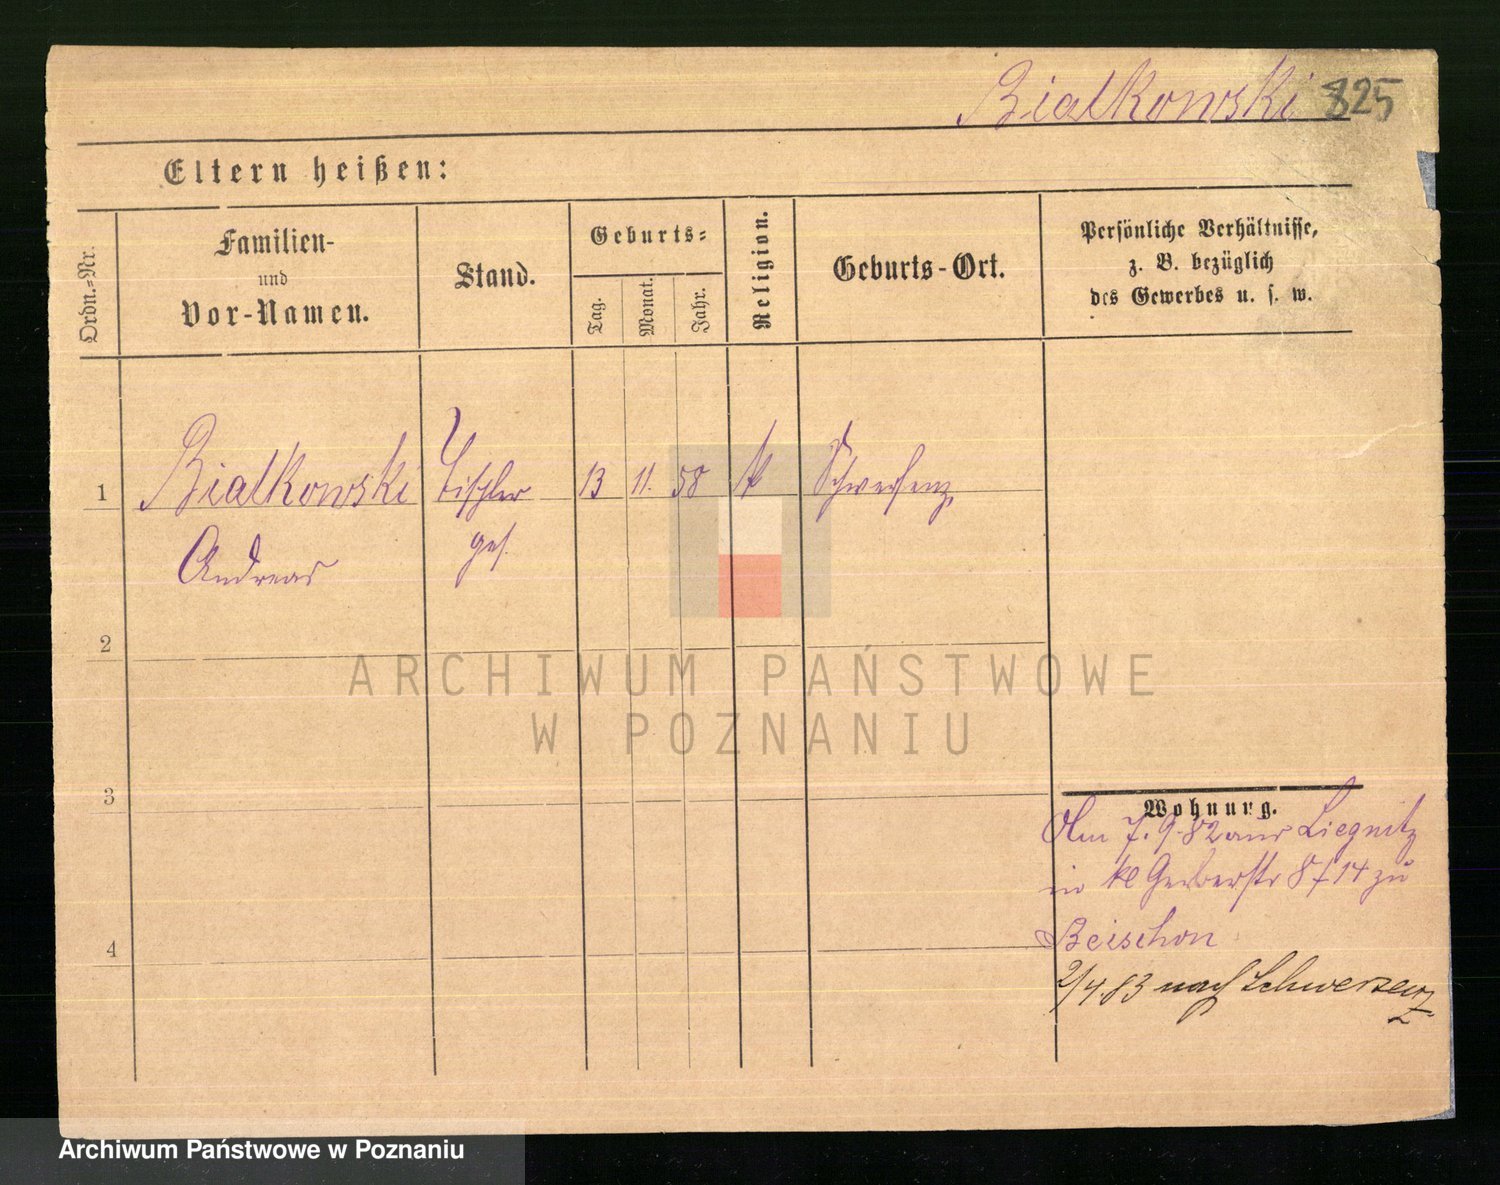 Bialkowski 825
Eltern heißen:
Ordn.-Nr.
Familien-
und
Vor-Namen.
Stand.
Geburts-
Tag.
Monat.
Jahr.
Religion.
Geburts-Ort.
Persönliche Verhältnisse,
z. B. bezüglich
des Gewerbes u. s. w.
1 Bialkowski Tischler 13 11. 58 k Schwersenz
Andreas ges.
2
3
4
Wohnung.
Am 7.9.82 aus Liegnitz
in kl Gerberstr 8/14 zu
2/4.83 nach Schwersenz
ARCHIWUM PAŃSTWOWE
W POZNANIU
Archiwum Państwowe w Poznaniu